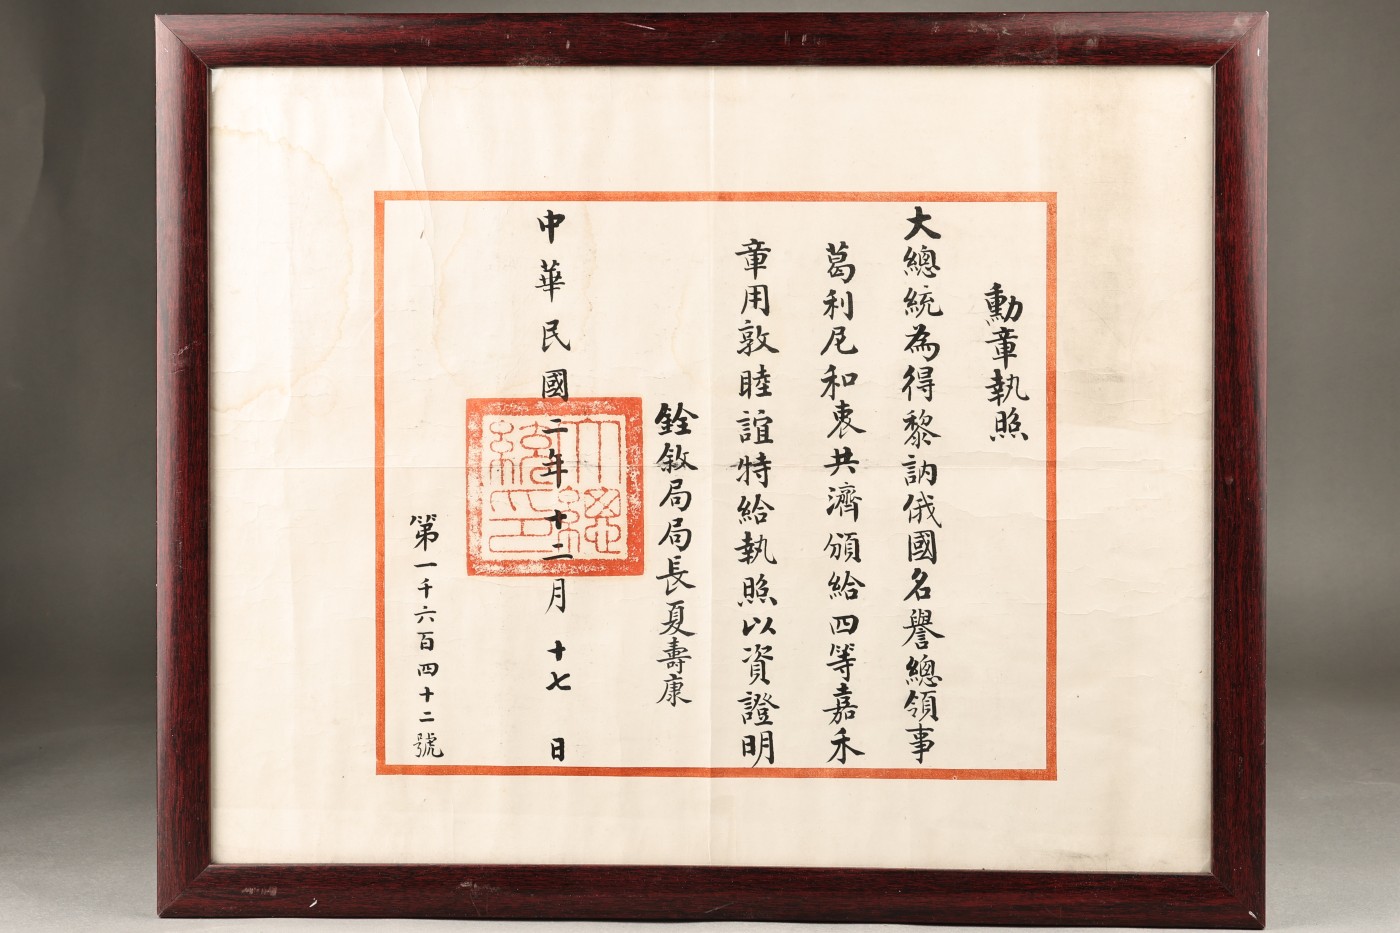 勳章執照
大總統為得黎訥俄國名譽總領事
葛利尼和衷共濟頒給四等嘉禾
章用敦睦誼特給執照以資證明
銓敘局局長夏壽康
中華民國二年十二月十七日
大總統印
第一千六百四十二號